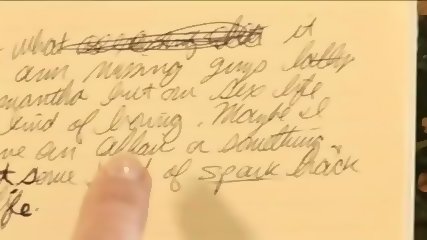 what it
am missing guys lately
mantha but our sex life
kind of boring. Maybe I
ve an affair or something
t some of spark back
fe.